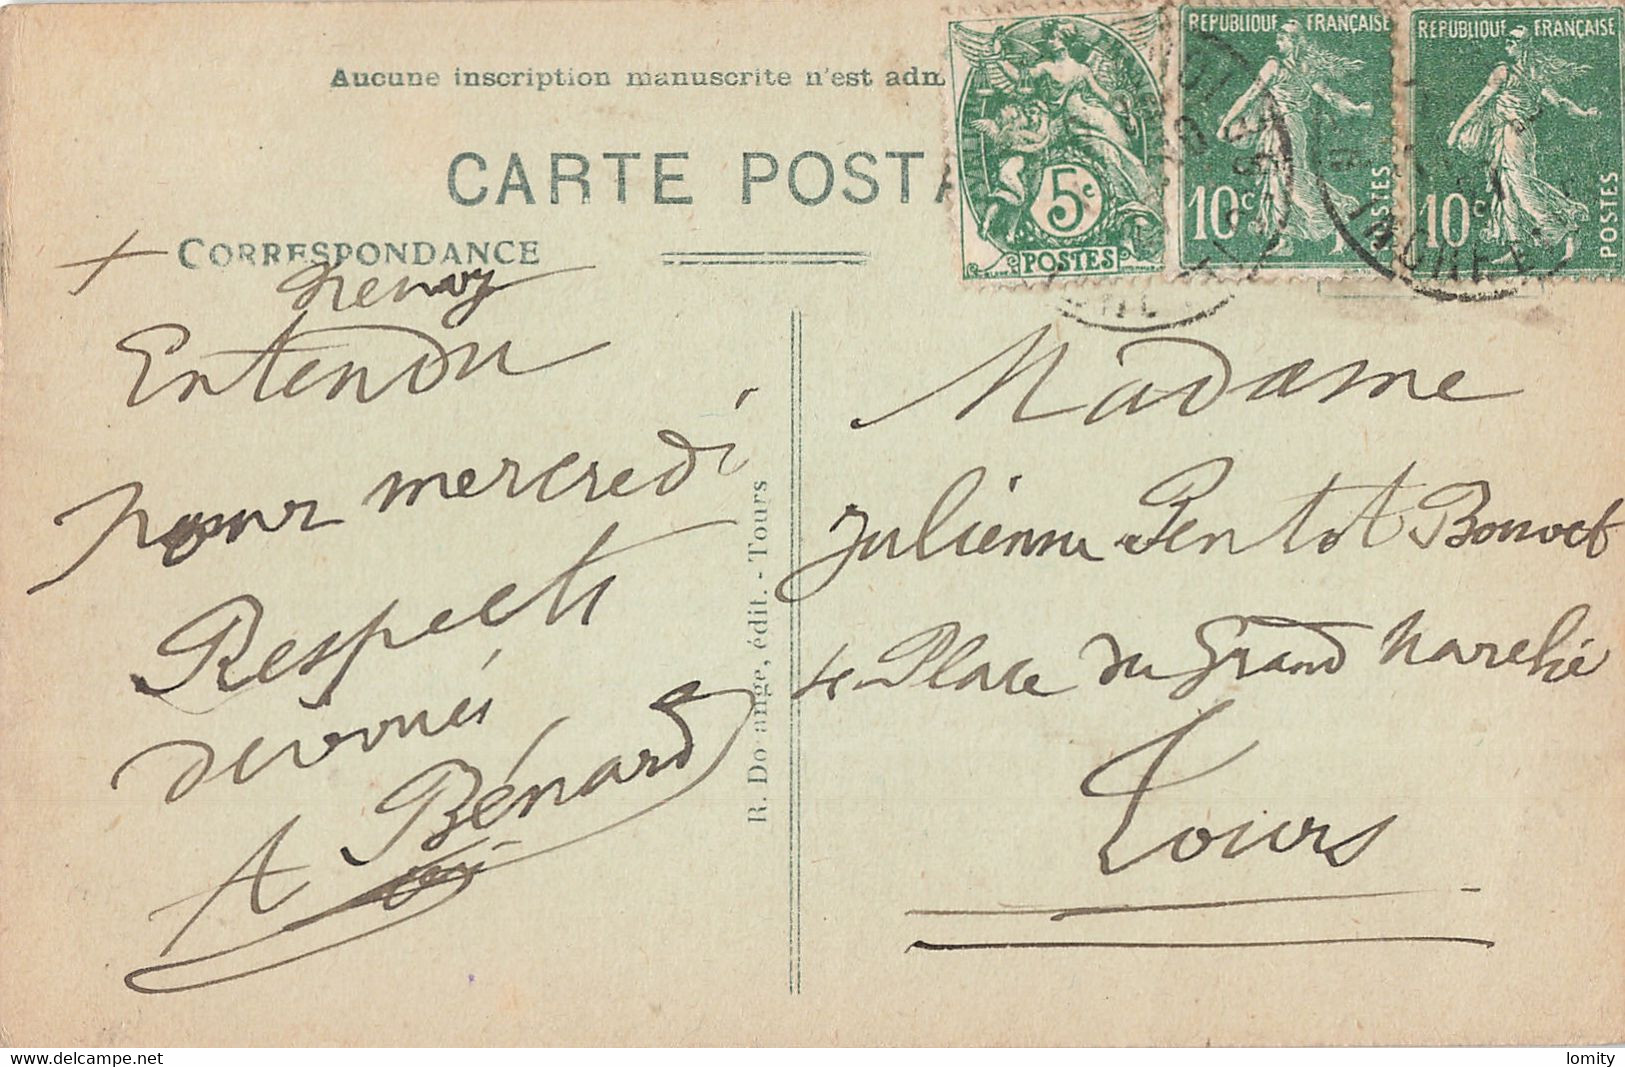 Aucune inscription manuscrite n'est adm
CARTE POSTA
CORRESPONDANCE
Entendu
pour mercredi
Respects
dévoués
A Bénard
R. Do ange, édit. - Tours
5c
POSTES
REPUBLIQUE FRANÇAISE
10c
POSTES
REPUBLIQUE FRANÇAISE
10c
POSTES
Madame
Julienne Pentot Bonvet
4 Place du Grand Marché
Tours
lomity